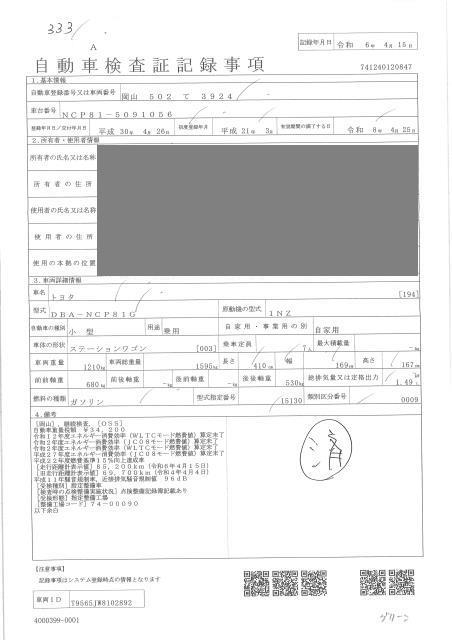 333
A
記録年月日 令和 6年 4月 15日
自動車検査証記録事項
741240120847
1.基本情報
自動車登録番号又は車両番号 岡山 502 て 3924
車台番号 NCP81-5091056
登録年月日/交付年月日 平成 30年 4月 26日 初度登録年月 平成 21年 3月 有効期間の満了する日 令和 8年 4月 25日
2.所有者・使用者情報
所有者の氏名又は名称
所有者の住所
使用者の氏名又は名称
使用者の住所
使用の本拠の位置
3.車両詳細情報
車名 トヨタ [194]
型式 DBA-NCP81G 原動機の型式 1NZ
自動車の種別 小型 用途 乗用 自家用・事業用の別 自家用
車体の形状 ステーションワゴン [003] 乗車定員 7人 最大積載量 -kg
車両重量 1210kg 車両総重量 1595kg 長さ 410cm 幅 169cm 高さ 167cm
前前軸重 680kg 前後軸重 -kg 後前軸重 -kg 後後軸重 530kg 総排気量又は定格出力 1.49L
燃料の種類 ガソリン 型式指定番号 15130 類別区分番号 0009
4.備考
[岡山], 継続検査, [OSS]
自動車重量税額 ¥34,200
令和12年度エネルギー消費効率(WLTCモード燃費値)算定未了
令和2年度エネルギー消費効率(JC08モード燃費値)算定未了
令和2年度エネルギー消費効率(WLTCモード燃費値)算定未了
平成27年度エネルギー消費効率(JC08モード燃費値)算定未了
平成22年度燃費基準15%向上達成車
[走行距離計表示値] 85,200km (令和6年4月15日)
[旧走行距離計表示値] 69,700km (令和4年4月4日)
平成11年騒音規制車, 近接排気騒音規制値 96dB
[受検種別] 指定整備車
[検査時の点検整備実施状況] 点検整備記録簿記載あり
[受検形態] 指定整備工場
[整備工場コード] 74-00090
以下余白
【注意事項】
記録事項はシステム登録時点の情報となります
車両ID T9565JW8102892
4000399-0001
グリーン